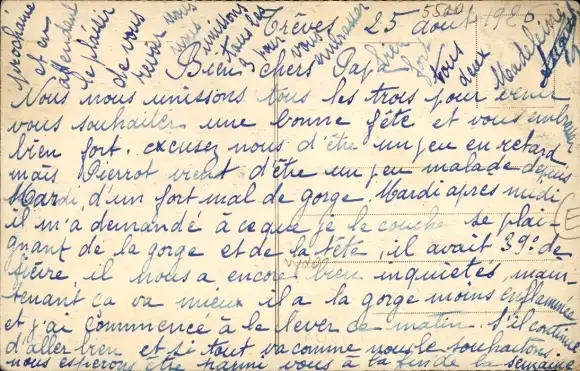 Trêves 25 août 1920
Bien chers Papa
Nous nous unissons tous les trois pour venir
vous souhaiter une bonne fête et vous embrasser
bien fort. excusez nous d'être un peu en retard
mais Pierrot vient d'être un peu malade depuis
Mardi, d'un fort mal de gorge. Mardi après midi
il m'a demandé à ce que je le couche se plai-
gnant de la gorge et de la tête, il avait 39° de
fièvre, il nous a encore bien inquiétés, main-
tenant ça va mieux il a la gorge moins enflammée
et j'ai commencé à le lever ce matin. S'il continue
d'aller bien et si tout va comme nous le souhaitons
nous espérons être parmi vous à la fin de la semaine
prochaine
et en
attendant
le plaisir
de vous
revoir nous
nous
unissons
tous les
3 pour
vous
embrasser
bien
fort
Vous
deux
Madeleine